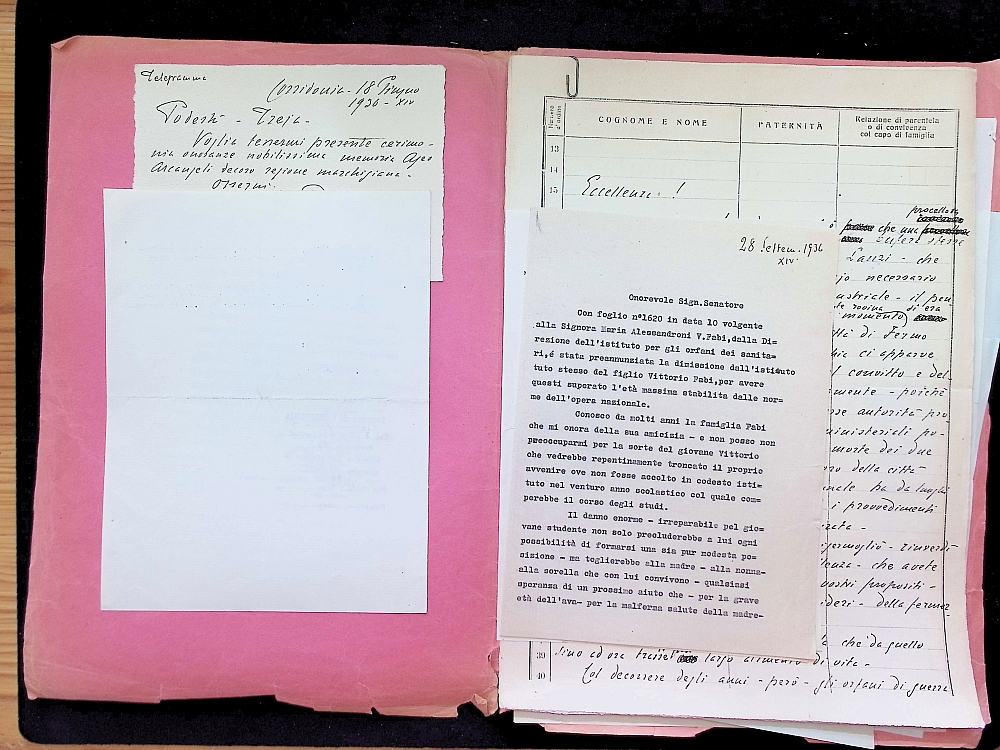 Telegramma
Corridonia - 18 Giugno
1936 - XIV
Podestà - Treja -
Voglia tenermi presente cerimo-
nia onoranze nobilissima memoria Ageo
Arcangeli decoro regione marchigiana -
COGNOME E NOME
PATERNITÀ
Relazione di parentela
o di convivenza
col capo di famiglia
13
14
15
Eccellenza !
procellosa
che una
Lanzi - che
necessario
ustriale - il
momento
di Fermo
ci apparve
convitto e del-
mente - poichè
autorità pro
ministeriali po-
morte dei due
della città
ha da lunghi
i provvedimenti
28 Settem. 1936
XIV
Onorevole Sign.Senatore
Con foglio n°1620 in data 10 volgente
alla Signora Maria Alessandroni V.Fabi,dalla Di-
rezione dell'istituto per gli orfani dei sanita-
ri,é stata preannunziata la dimissione dall'istituto
tuto stesso del figlio Vittorio Fabi,per avere
questi superato l'età massima stabilita dalle nor-
me dell'opera nazionale.
Conosco da molti anni la famiglia Fabi
che mi onora della sua amicizia - e non posso non
preoccuparmi per la sorte del giovane Vittorio
che vedrebbe repentinamente troncato il proprio
avvenire ove non fosse accolto in codesto isti-
tuto nel venturo anno scolastico col quale com=
perebbe il corso degli studi.
Il danno enorme - irreparabile pel gio=
vane studente non solo precluderebbe a lui ogni
possibilità di formarsi una sia pur modesta po=
sizione - ma toglierebbe alla madre - alla nonna=
alla sorella che con lui convivono - qualsiasi
speranza di un prossimo aiuto che - per la grave
età dell'ava- per la malferma salute della madre-
rinverdi-
che avete
vostri propositi -
della fermez
che da quello
39
sino ad ora largo alimento di vita -
40
Col decorrere degli anni - però - gli orfani di guerra